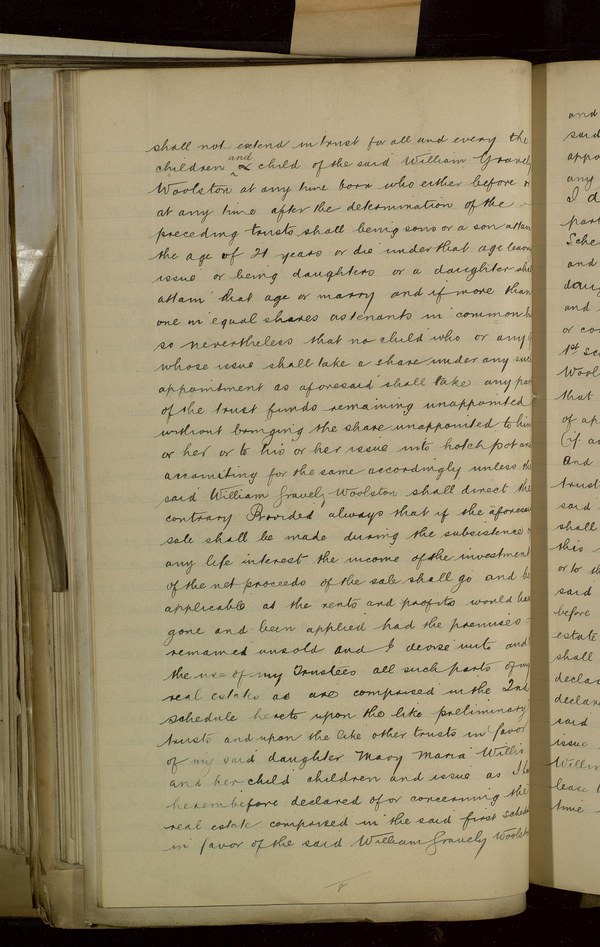 shall not extend in trust for all and every the
children and child of the said William Gravely
Woolston at any time born who either before or
at any time after the determination of the
preceding trusts shall being sons or a son attain
the age of 21 years or die under that age leaving
issue or being daughters or a daughter shall
attain that age or marry and if more than
one in equal shares as tenants in common but
so nevertheless that no child who or any
whose issue shall take a share under any such
appointment as aforesaid shall take any part
of the trust funds remaining unappointed
without bringing the share unappointed to him
or her or to his or her issue into hotch pot and
accounting for the same accordingly unless the
said William Gravely Woolston shall direct the
contrary Provided always that if the aforesaid
sale shall be made during the subsistence
any life interest the income of the investment
of the net proceeds of the sale shall go and be
applicable as the rents and profits would have
gone and been applied had the premises
remained unsold and I devise unto and
the use of my Trustees all such parts of my
real estates as are comprised in the 2nd
schedule hereto upon the like preliminary
trusts and upon the like other trusts in favor
of my said daughter Mary Maria Willis
and her child children and issue as I
hereinbefore declared of or concerning the
real estate comprised in the said first schedule
in favor of the said William Gravely Woolston
and
said
any
I d
Sche
and
and
or co
1st
that
of ap
(if a
and
trust
said
shall
this
or to th
said
before
estate
shall
said
issue
time